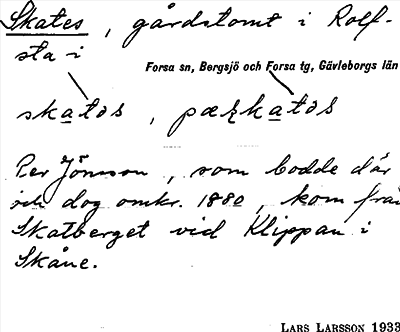 Skates, gårdstomt i Rolf-
sta i
Forsa sn, Bergsjö och Forsa tg, Gävleborgs län
skatəs, pæʂkatəs
Per Jönsson, som bodde där
och dog omkr. 1880, kom från
Skatberget vid Klippan i
Skåne.
LARS LARSSON 1933